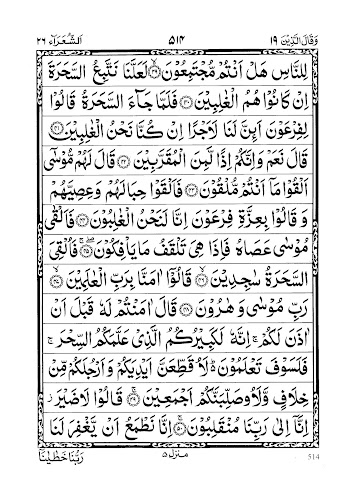 وَقَالَ الَّذِيْنَ ١٩ ٥١٤ اَلشُّعَرَآء ٢٦
لِلنَّاسِ هَلْ اَنْتُمْ مُّجْتَمِعُوْنَ ﴿٣٩﴾ لَعَلَّنَا نَتَّبِعُ السَّحَرَةَ
اِنْ كَانُوْا هُمُ الْغٰلِبِيْنَ ﴿٤٠﴾ فَلَمَّا جَآءَ السَّحَرَةُ قَالُوْا
لِفِرْعَوْنَ اَئِنَّ لَنَا لَاَجْرًا اِنْ كُنَّا نَحْنُ الْغٰلِبِيْنَ ﴿٤١﴾
قَالَ نَعَمْ وَاِنَّكُمْ اِذًا لَّمِنَ الْمُقَرَّبِيْنَ ﴿٤٢﴾ قَالَ لَهُمْ مُّوْسٰٓى
اَلْقُوْا مَآ اَنْتُمْ مُّلْقُوْنَ ﴿٤٣﴾ فَاَلْقَوْا حِبَالَهُمْ وَعِصِيَّهُمْ
وَقَالُوْا بِعِزَّةِ فِرْعَوْنَ اِنَّا لَنَحْنُ الْغٰلِبُوْنَ ﴿٤٤﴾ فَاَلْقٰى
مُوْسٰى عَصَاهُ فَاِذَا هِيَ تَلْقَفُ مَا يَاْفِكُوْنَ ﴿٤٥﴾ فَاُلْقِيَ
السَّحَرَةُ سٰجِدِيْنَ ﴿٤٦﴾ قَالُوْٓا اٰمَنَّا بِرَبِّ الْعٰلَمِيْنَ ﴿٤٧﴾
رَبِّ مُوْسٰى وَهٰرُوْنَ ﴿٤٨﴾ قَالَ اٰمَنْتُمْ لَهٗ قَبْلَ اَنْ
اٰذَنَ لَكُمْ ۚ اِنَّهٗ لَكَبِيْرُكُمُ الَّذِيْ عَلَّمَكُمُ السِّحْرَ ۚ
فَلَسَوْفَ تَعْلَمُوْنَ ۬ؕ لَاُقَطِّعَنَّ اَيْدِيَكُمْ وَاَرْجُلَكُمْ مِّنْ
خِلَافٍ وَّلَاُوصَلِّبَنَّكُمْ اَجْمَعِيْنَ ﴿٤٩﴾ قَالُوْا لَا ضَيْرَ ؗ
اِنَّآ اِلٰى رَبِّنَا مُنْقَلِبُوْنَ ﴿٥٠﴾ اِنَّا نَطْمَعُ اَنْ يَّغْفِرَ لَنَا
رَبُّنَا خَطٰيٰنَآ
منزل ٥
514